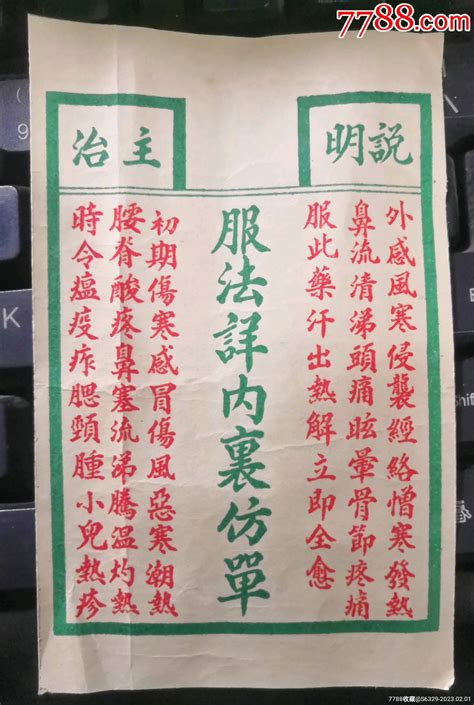 7788.com
說明
外感風寒侵襲經絡憎寒發熱
鼻流清涕頭痛眩暈骨節疼痛
服此藥汗出熱解立即全愈
服法詳內裏仿單
主治
初期傷寒感冒傷風惡寒潮熱
腰脊酸疼鼻塞流涕騰温灼熱
時令瘟疫痄腮頸腫小兒熱疹
K
7788收藏@S6329-2023.02.01